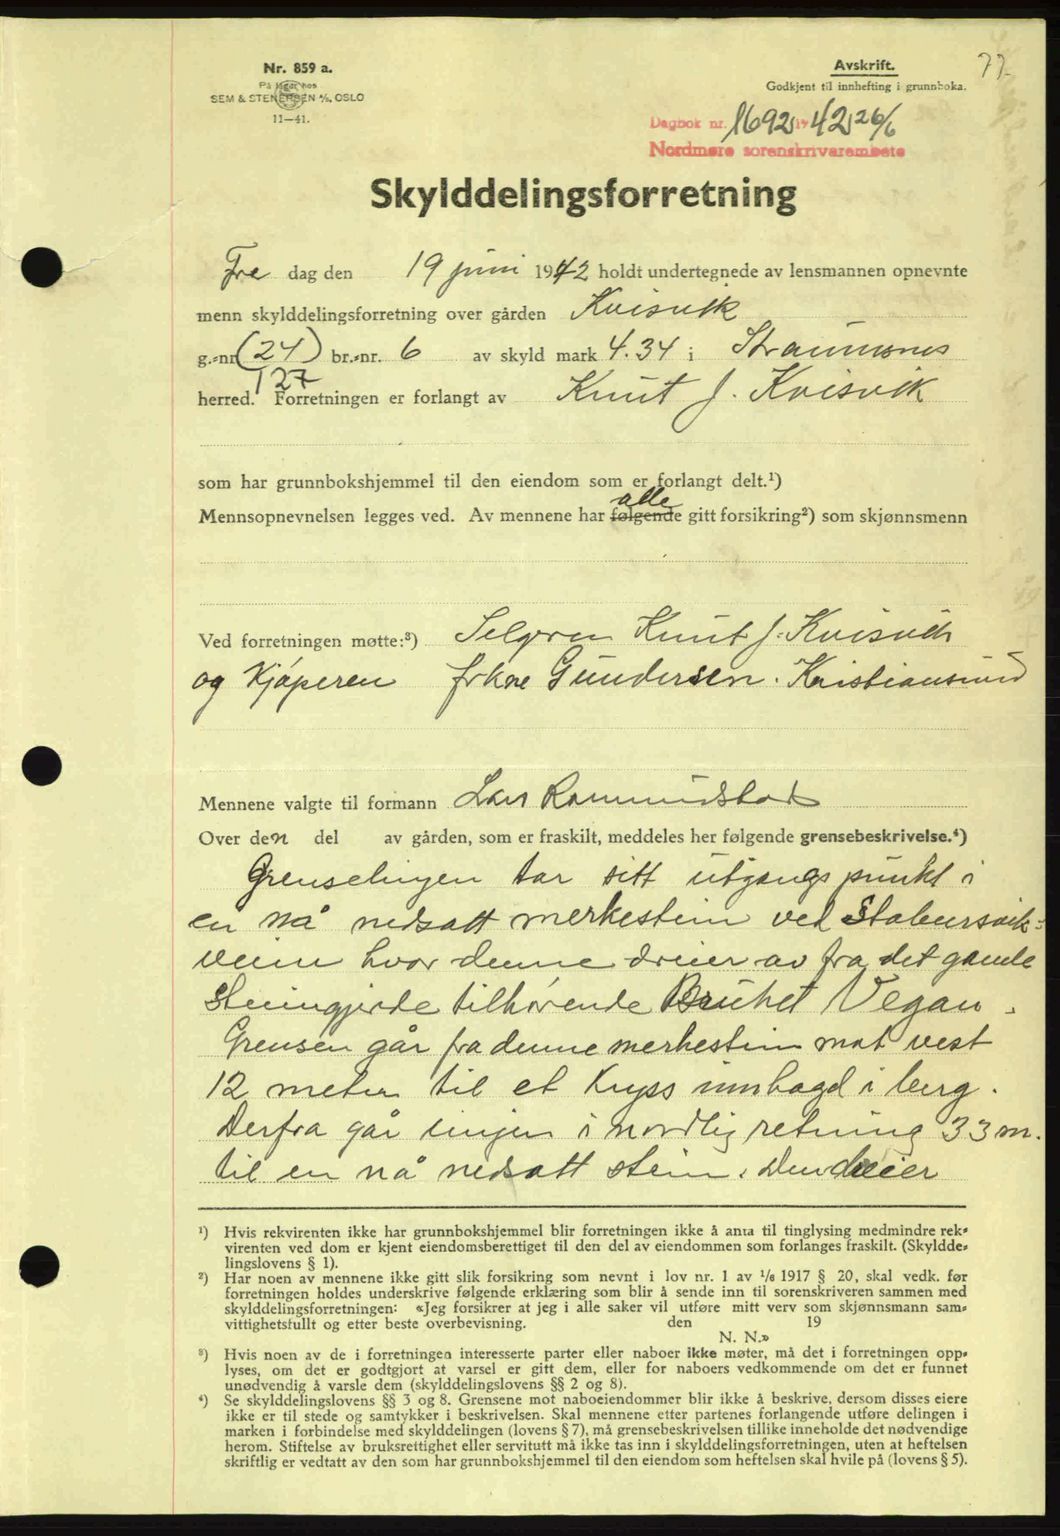 Nr. 859 a.
På lager hos
SEM & STENERSEN A/S, OSLO
11—41.
Avskrift.
Godkjent til innhefting i grunnboka.
77.
Dagbok nr. 1692, 1942, 26/6
Nordmøre sorenskriverembete
Skylddelingsforretning
Fre dag den 19 juni 1942 holdt undertegnede av lensmannen opnevnte
menn skylddelingsforretning over gården Kvisvik
g.-nr. (24) br.-nr. 6 av skyld mark 4.34 i Straumsnes
127
herred. Forretningen er forlangt av Knut J. Kvisvik
som har grunnbokshjemmel til den eiendom som er forlangt delt.¹)
alle
Mennsopnevnelsen legges ved. Av mennene har følgende gitt forsikring²) som skjønnsmenn
Ved forretningen møtte:³) Selgeren Knut J. Kvisvik
og Kjøperen Gundersen. Kristiansund
Mennene valgte til formann Lars Romundstad
Over den del av gården, som er fraskilt, meddeles her følgende grensebeskrivelse.⁴)
Grenselinjen tar sitt utgangspunkt i
en nå nedsatt merkestein ved Stabursvik-
veien hvor denne dreier av fra det gamle
Steingjerde tilhørende Bruket Vegan.
Grensen går fra denne merkestein mot vest
12 meter til et Kryss innhagd i berg.
Derfra går linjen i nordlig retning 33 m.
til en nå nedsatt stein. Den dreier
¹) Hvis rekvirenten ikke har grunnbokshjemmel blir forretningen ikke å anta til tinglysing medmindre rek-
virenten ved dom er kjent eiendomsberettiget til den del av eiendommen som forlanges fraskilt. (Skyldde-
lingslovens § 1).
²) Har noen av mennene ikke gitt slik forsikring som nevnt i lov nr. 1 av 1/6 1917 § 20, skal vedk. før
forretningen holdes underskrive følgende erklæring som blir å sende inn til sorenskriveren sammen med
skylddelingsforretningen: «Jeg forsikrer at jeg i alle saker vil utføre mitt verv som skjønnsmann sam-
vittighetsfullt og etter beste overbevisning. den 19
N. N.»
³) Hvis noen av de i forretningen interesserte parter eller naboer ikke møter, må det i forretningen opp-
lyses, om det er godtgjort at varsel er gitt dem, eller for naboers vedkommende om det er funnet
unødvendig å varsle dem (skylddelingslovens §§ 2 og 8).
⁴) Se skylddelingslovens §§ 3 og 8. Grensene mot naboeiendommer blir ikke å beskrive, dersom disses eiere
ikke er til stede og samtykker i beskrivelsen. Skal mennene etter partenes forlangende utføre delingen i
marken i forbindelse med skylddelingen (lovens § 7), må grensebeskrivelsen tillike inneholde det nødvendige
herom. Stiftelse av bruksrettighet eller servitutt må ikke tas inn i skylddelingsforretningen, uten at heftelsen
skriftlig er vedtatt av den som har grunnbokshjemmel til den eiendom som heftelsen skal hvile på (lovens § 5).